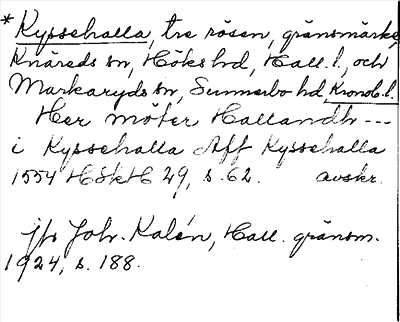 * Kyssehalla, tre rösen, gränsmärke,
Knäreds sn, Höks hd, Hall. l., och
Markaryds sn, Sunnerbo hd, Kronob. l.
Her möter Hallandh ---
i Kyssehalla Aff Kyssehalla
1554 HSkH 29, s. 62. avskr.
jfr Joh. Kalén, Hall. gränsm.
1924, s. 188.